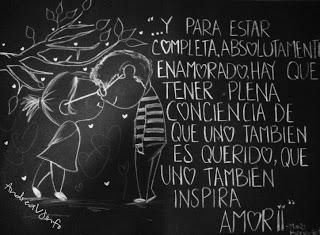 ...Y PARA ESTAR
COMPLETA, ABSOLUTAMENTE
ENAMORADO, HAY QUE
TENER PLENA
CONCIENCIA DE
QUE UNO TAMBIEN
ES QUERIDO, QUE
UNO TAMBIEN
INSPIRA
AMOR¡¡"